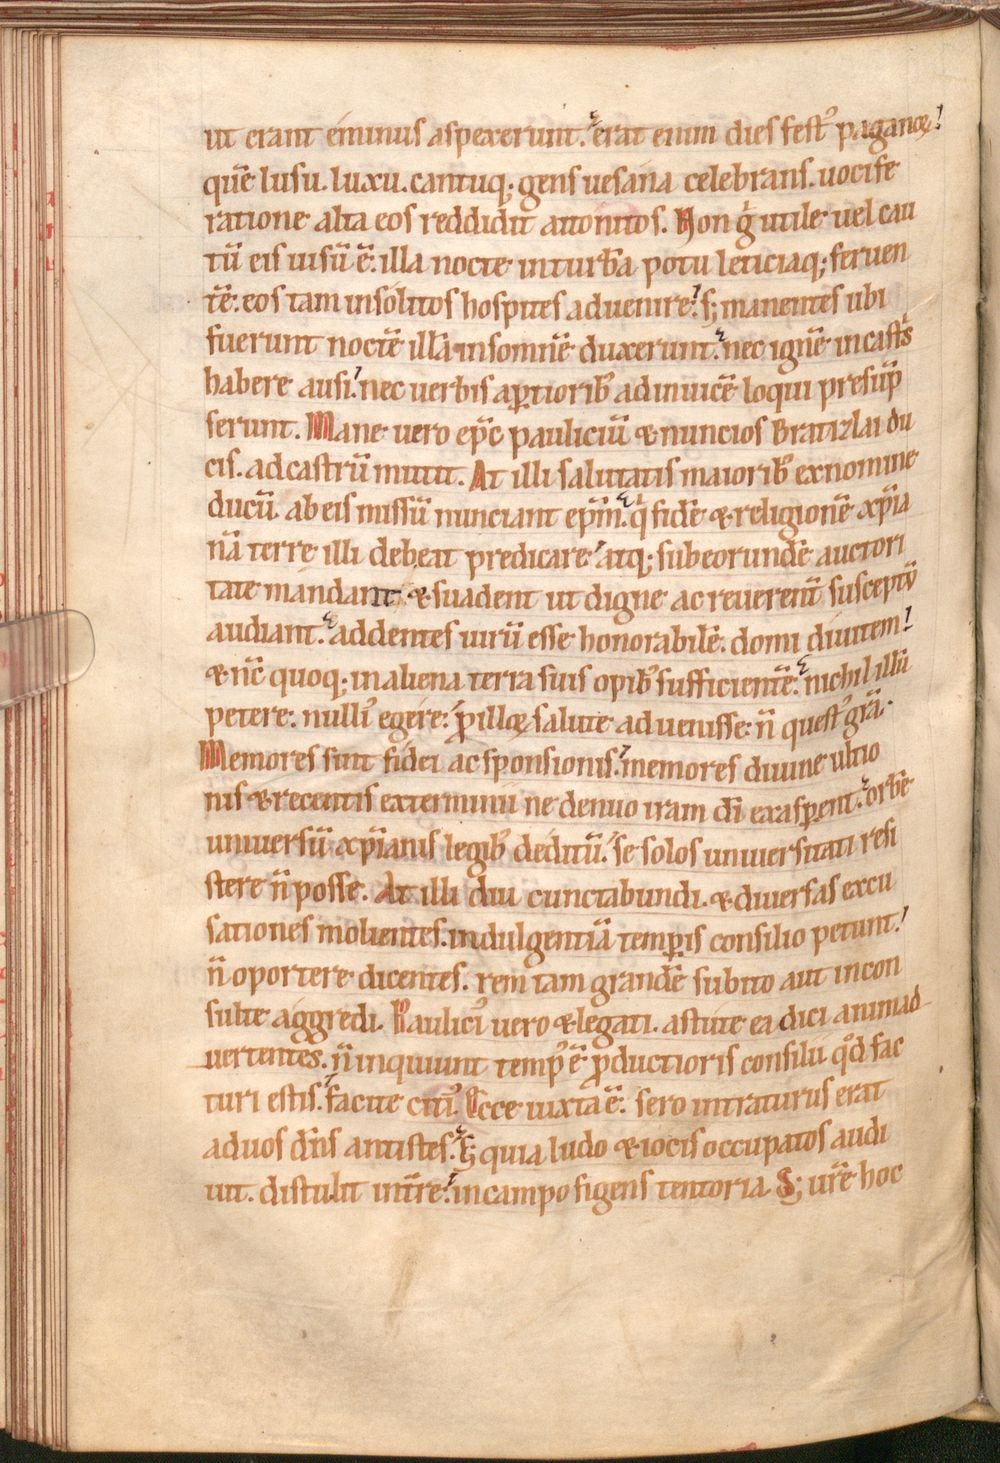 ut erant eminus aspexerunt. erat enim dies fest᷒ paganoꝝ.
quē lusu. luxu. cantuq; gens uesana celebrans. uocife
ratione alta eos reddidit attonitos. Non g̊ utile uel cau
tū eis uisū ē. illa nocte in turba potu leticiaq; feruen
tē. eos tam insolitos hospites aduenire. s; manentes ubi
fuerunt noctē illā insomnē duxerunt. nec ignē in castris
habere ausi. nec uerbis aꝑtiorib᷒ ad inuicē loqui presūp
serunt. Mane uero ep̄c pauliciū & nuncios Bratizlai du
cis. ad castrū mittit. At illi salutatis maiorib᷒ ex nomine
ducū ab eis missū nunciant ep̄m. q̇ fidē & religionē xp̄ia
nā terre illi debeat predicare. atq; sub eorundē auctori
tate mandant & suadent ut digne ac reuerent̄ susceptū
audiant. addentes uirū esse honorabilē. domi diuitem.
& nc̄ quoq; in aliena terra suis opib᷒ sufficientē. nichil illū
petere. nulli᷒ egere. ꝓ illoꝝ salute aduenisse. n̄ quest᷒ grā.
Memores sint fidei ac sponsionis. memores diuine ultio
nis & recentis exterminii ne denuo iram dī exasꝑent. orbē
uniuersū xp̄ianis legib᷒ deditū. se solos uniuersitati resi
stere n̄ posse. At illi diu cunctabundi. & diuersas excu
sationes molientes. indulgentiā temꝑis consilio petunt.
n̄ oportere dicentes. rem tam grandē subito aut incon
sulte aggredi. Paulici᷒ uero & legati. astute ea dici animad
uertentes. n̄ inquiunt temp᷒ ē ꝓductioris consilii. qd̄ fac
turi estis. facite citi᷒. Ecce iuxta ē. sero intraturus erat
ad uos dn̄s antistes. S; quia ludo & iocis occupatos audi
uit. distulit intr̄e. in campo figens tentoria. S; ur̄e hoc